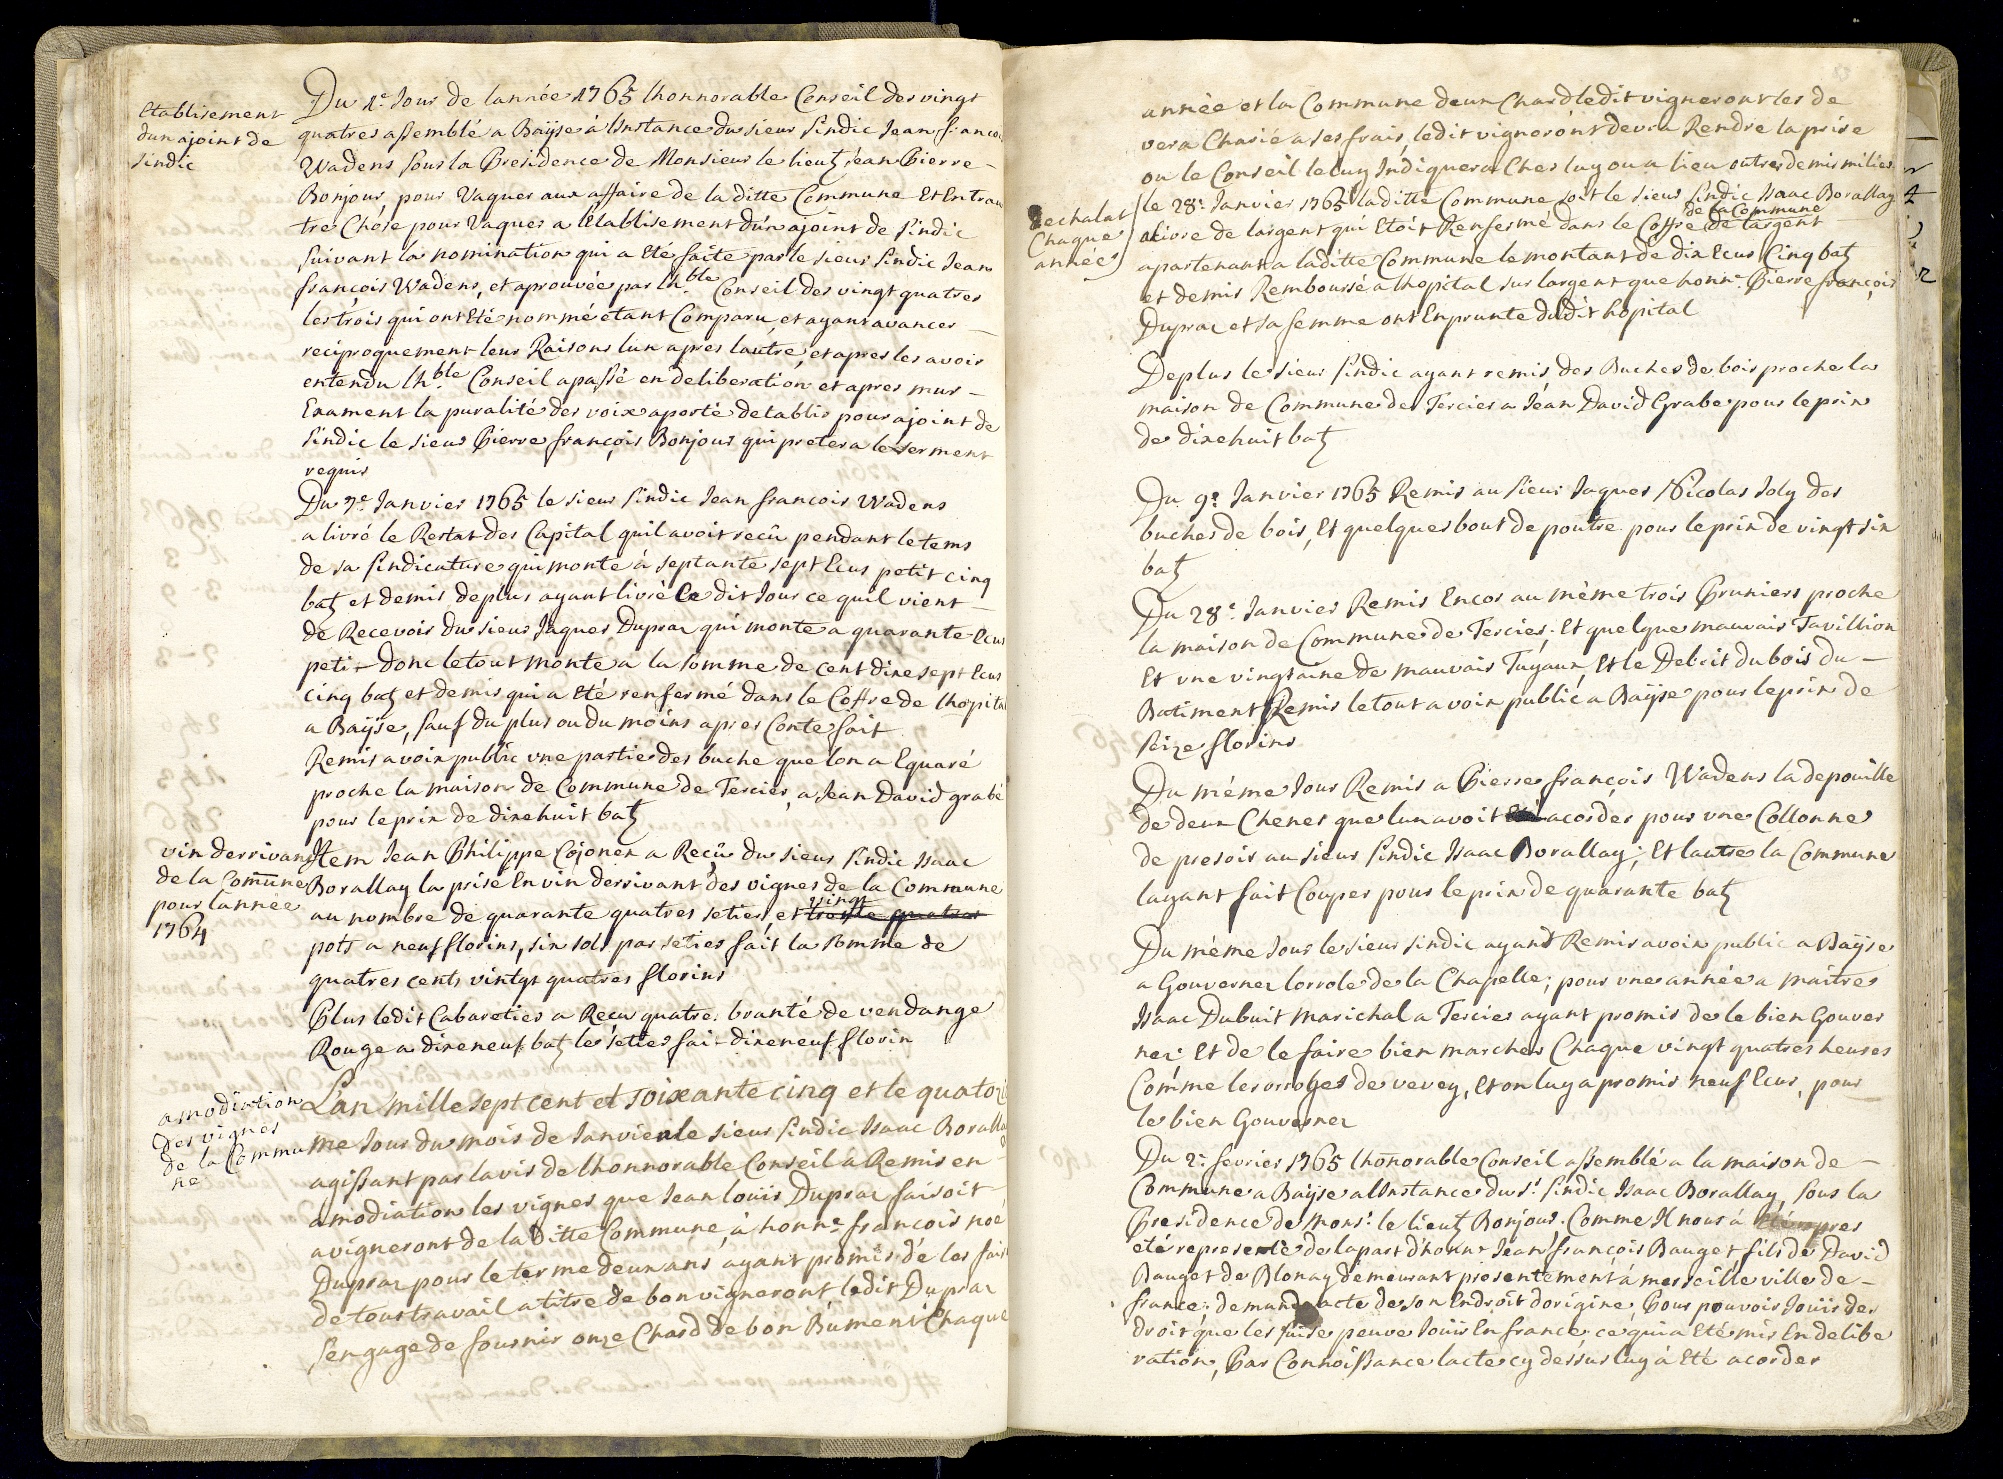 Etablisement
dun ajoint de
sindic
Du 1.e Jour de lannée 1765 lhonnorable Conseil des vingt
quatres assemblé a Baÿse à Linstance du sieur sindic Jean franco
Wadens sous la Presidence de Monsieur le lieut jean Pierre
Bonjour, pour Vaquer aux affaire de la ditte Commune Et Entrau
tre Chose pour Vaquer a l'Etablisement d'un ajoint de sindic
suivant la nomination qui a Eté faite par le sieur sindic Jean
françois Wadens, et aprouvée par lh.ble Conseil des vingt quatres
les trois qui ont Eté nommé étant Comparu, et ayant avancer
reciproquement leur Raisons lun apres lautre, et apres les avoir
entendu lh.ble Conseil a passé en deliberation et apres mur
Exament la puralité des voix a porté detablir pour ajoint de
sindic le sieur Pierre françois Bonjour qui pretera le serment
requis
Du 7.e Janvier 1765 le sieur sindic Jean francois Wadens
a livré le Restat des Capital quil avoit recû pendant le tems
de sa sindicature qui monte à septante sept Ecus petit cinq
batz et demis deplus ayant livré Ce dit Jour ce quil vient
de Recevoir du sieur Jaques Dupraz qui monte a quarante Ecus
peti - donc le tout monte a la somme de cent dixe sept Ecus
cinq batz et demis qui a Eté renfermé dans le Coffre de lhopital
a Baÿse, sauf du plus ou du moins apres Conte fait
Remis a voix public une partie des buche que lon a Equaré
proche la maison de Commune de Tercier, a Jean David grabé
pour le prix de dixehuit batz
vin derrivant
de la Comune
pour lannée
1764
Item Jean Philippe Cojonex a Reçû du sieur sindic Isaac
Borallay la prise En vin derrivant des vignes de la Commune
au nombre de quarante quatres setier, et vingt trente quatres
pots a neuf florins, six sols par setier fait la somme de
quatres cents vintgt quatres florins
Plus ledit Cabaretier a Recu quatre branté de vendange
Rouge a dixeneuf batz le setier fai - dixeneuf florin
amodiation
des vignes
de la Commu
ne
L'an mille sept cent et soixante cinq et le quatorzie
me Jour du mois de Janvier le sieur sindic Isaac Borallay
agissant par lavis de lhonnorable Conseil à Remis en
amodiation les vignes que Jean louïs Dupraz faisoit
a vigneront de la ditte Commune, à honn.e francois noé
Dupraz pour le terme deux ans ayant promis de les fair
de tous travail a titre de bon vigneront ledit Dupraz
s'engage de fournir onze Chard de bon Bument Chaque
année et la Commune deux Chard ledit vigneront les de
vera Charié a ses frais, ledit vigneront devra Rendre la prise
ou le Conseil le luy Indiquera Ches luy ou a lieu outres demis milies
Lechalat
Chaque
année
le 28.e Janvier 1765 laditte Commune soit le sieur sindic Isaac Borallay
a livre de largent qui Etoit Renfermé dans le Coffre de largent de la Commune
apartenant a laditte Commune le montant de dix Ecus Cinq batz
et demis Remboursé a lhopital sur largent que honn.e Pierre françois
Dupraz et sa femme ont Enprunte dudit hopital
Deplus le sieur sindic ayant remis des Buches de bois proche la
maison de Commune de Tercier a Jéan David Grabe pour le prix
de dixehuit batz
Du 9.e Janvier 1765 Remis au sieur Jaques Nicolas Joly des
buches de bois, Et quelques bout de poutre pour le prix de vingt six
batz
Du 28.e Janvier Remis Encor au même trois Pruniers proche
la maison de Commune de Tercier, Et quelque mauvais Tavillion
Et une vingtaine de mauvais Tuyaux, Et le Debrit du bois du
Batiment Remis le tout a voix public a Baÿse pour le prix de
seize florins
Du même Jour Remis a Pierre françois Wadens la depouille
de deux Chenes que lun avoit acorder pour une Collonne
de presoir au sieur sindic Isaac Borallay; Et lautre la Commune
layant fait Couper pour le prix de quarante batz
Du même Jour le sieur sindic ayant Remis a voix public a Baÿse
a Gouverner lorrole de la Chapelle; pour une année a maitres
Isaac Dubuit marichal a Tercier ayant promis de le bien Gouver
ner Et de le faire bien marcher Chaque vingt quatres heures
Comme les orrologes de vevey, Et on luy a promis neuf Ecus, pour
le bien Gouverner
Du 2.e fevrier 1765 lhonorable Conseil assemblé a la maison de
Commune a Baÿse a linstance du s.r sindic Isaac Borallay, sous la
Presidence de Mons.r le lieut Bonjour. Comme Il nous à
eté representé de la part d'honn.e Jean françois Bauget fils de David
Bauget de Blonay demeurant presentement à merseille ville de
france; demande acte de son Endroit dorigine, Pour pouvoir Joüir des
droit que les suise peuve Joüir En france, ce qui a Eté mis En delibe
ration, Par Connoissance lacte cy dessus luy à Eté acorder